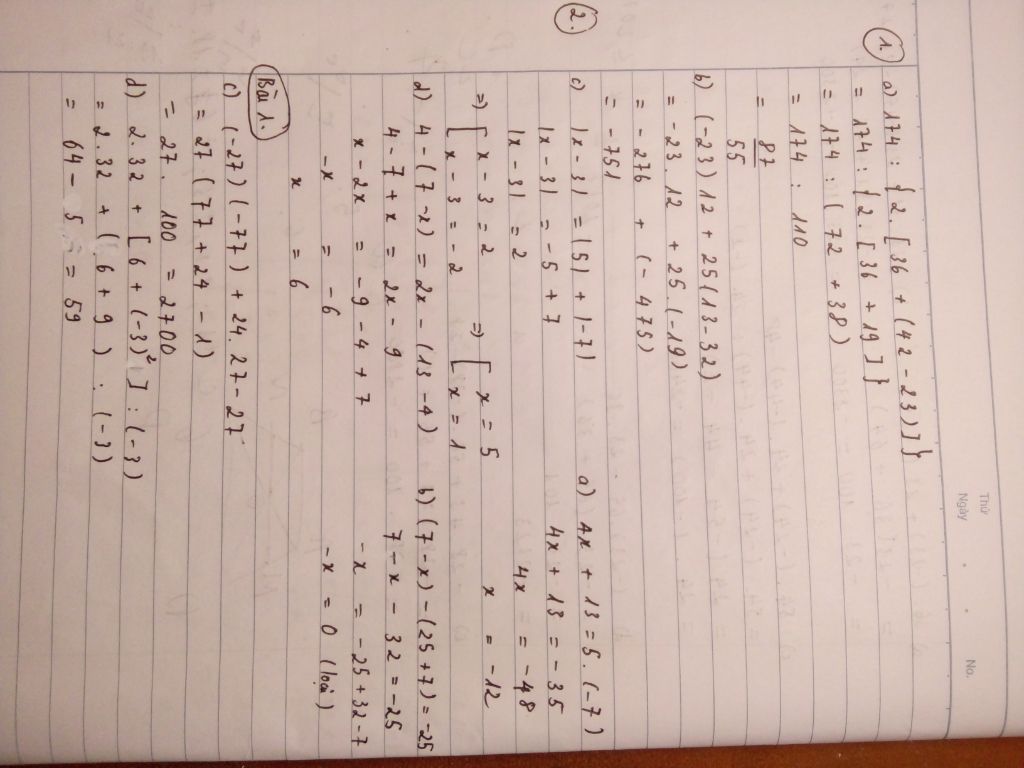 Thứ
Ngày
No.
1.
a) 174 : {2 [36 + (42 - 23)]}
= 174 : {2. [36 + 19]}
= 174 : (72 + 38)
= 174 : 110
= 87/55
b) (-23) 12 + 25(13-32)
= -23. 12 + 25. (-19)
= -276 + (-475)
= -751
2.
c) |x - 3| = |5| + |-7|
|x - 3| = -5 + 7
|x - 3| = 2
=> [ x - 3 = 2 => [ x = 5
x - 3 = -2 x = 1
a) 4x + 13 = 5. (-7)
4x + 13 = -35
4x = -48
x = -12
d) 4 - (7 - x) = 2x - (13 - 4)
4 - 7 + x = 2x - 9
x - 2x = -9 - 4 + 7
-x = -6
x = 6
b) (7 - x) - (25 + 7) = -25
7 - x - 32 = -25
-x = -25 + 32 - 7
-x = 0 (loại)
Bài 1.
c) (-27) (-77) + 24. 27 - 27
= 27 (77 + 24 - 1)
= 27. 100 = 2700
d) 2. 32 + [6 + (-3)²] : (-3)
= 2. 32 + (6 + 9) : (-3)
= 64 - 5 = 59